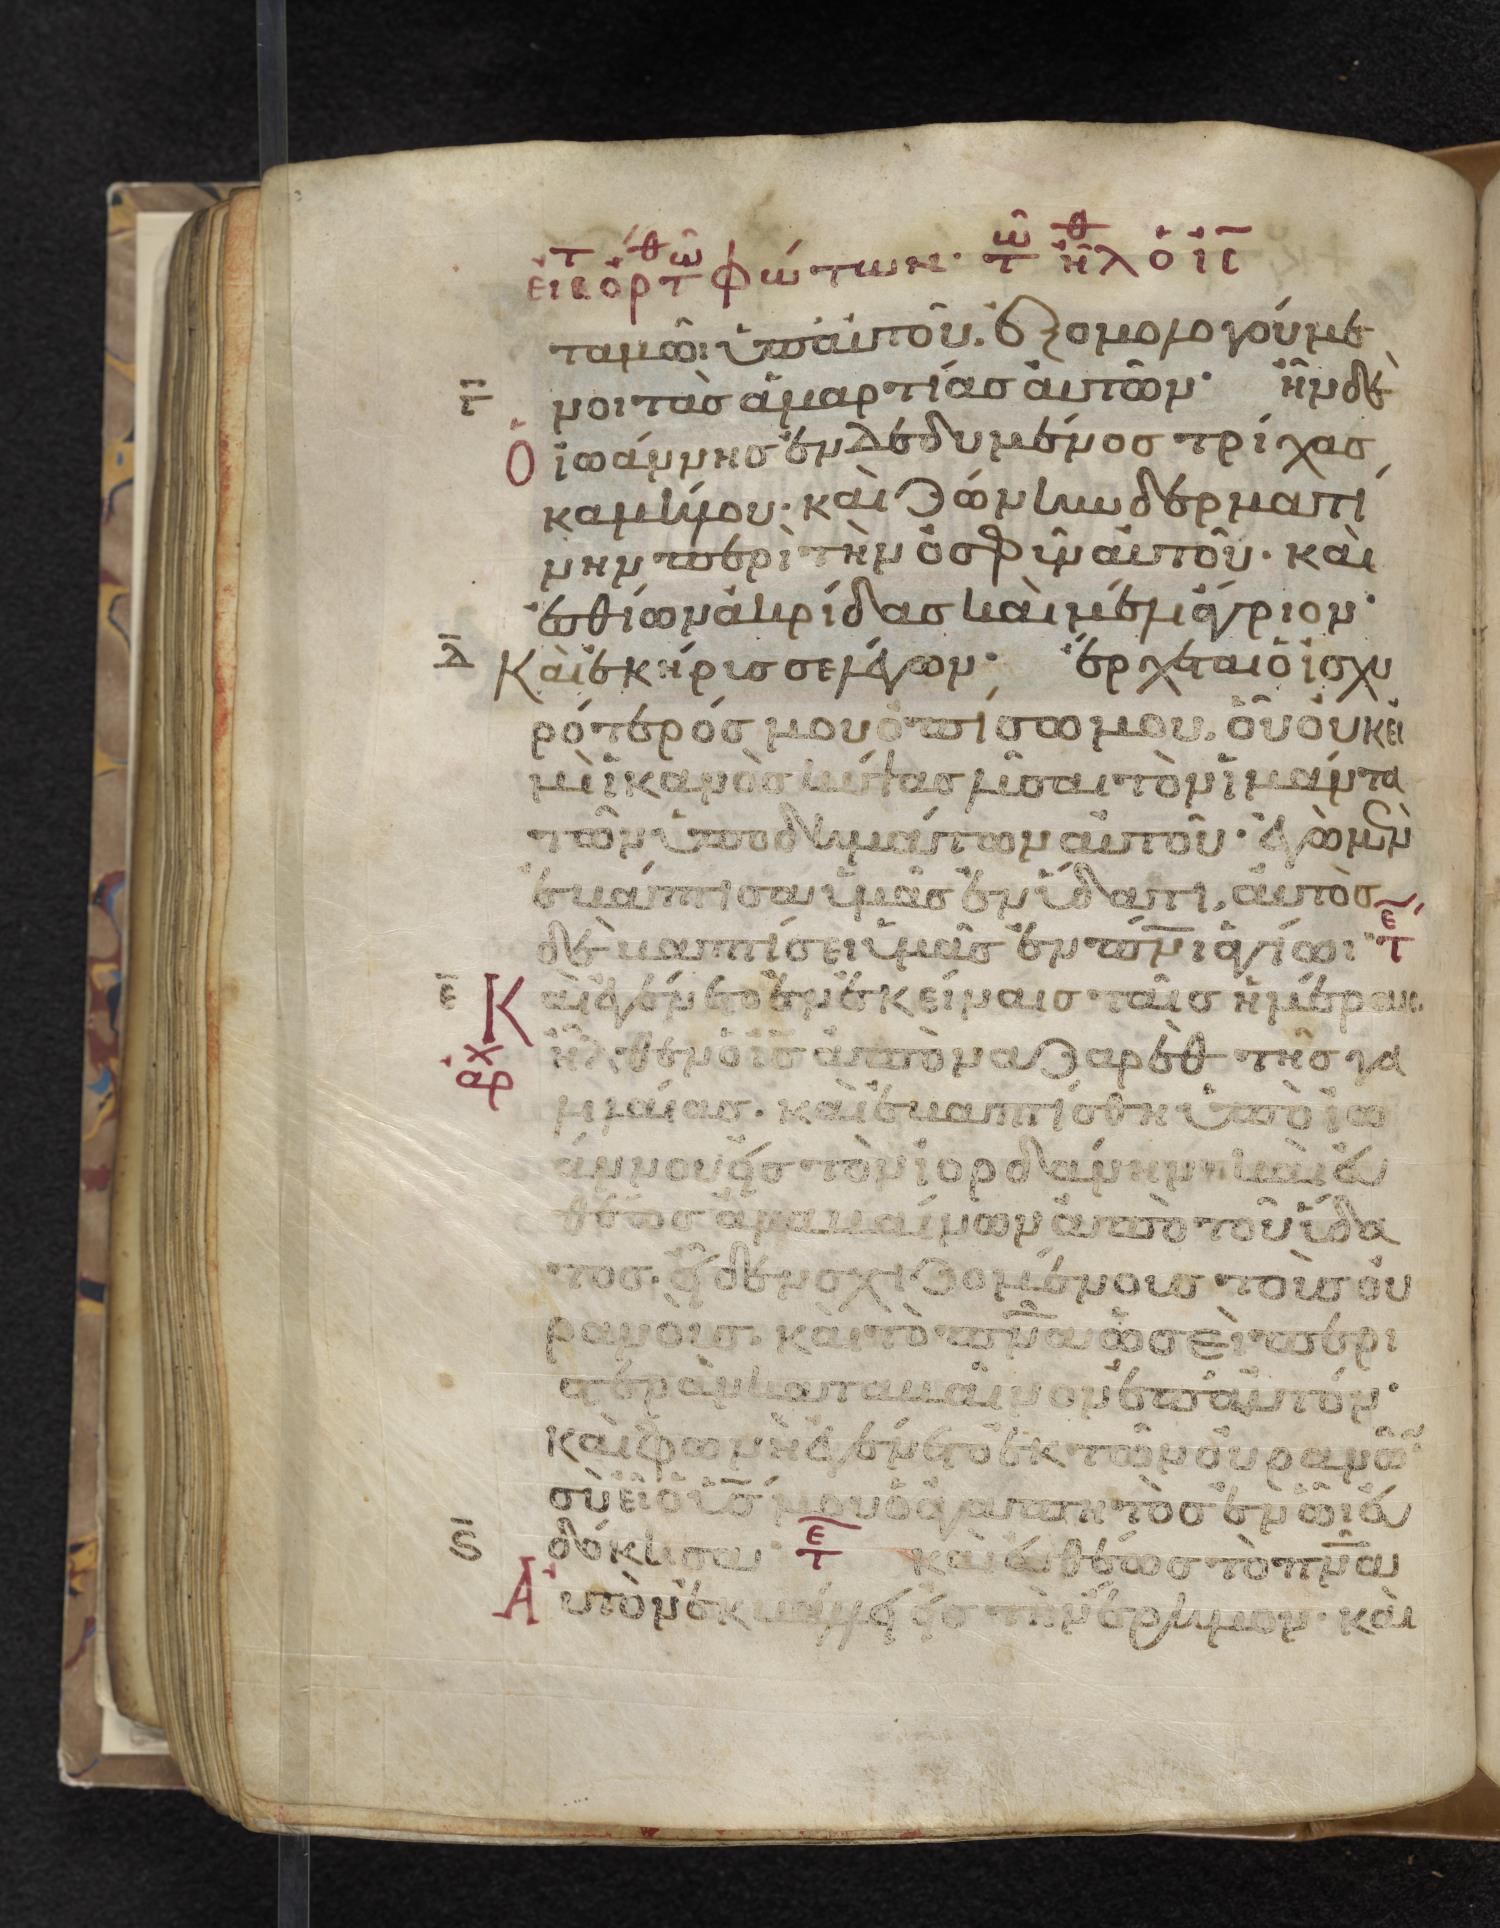 εἰς ἑορτ θ τῶ φώτων· τῶ θ ἦλ ὁ ἰς
ταμῶι ὑπ' αὐτοῦ. ἐξομολογούμε
γ νοι τὰς ἁμαρτίας αὐτῶν· ἦν δὲ
Ὁ ἰωάννησ ἐνδεδυμένοσ τρίχασ
καμήλου· καὶ ζώνην δερματί
νην περὶ τὴν ὀσφὺν αὐτοῦ· καὶ
ἐσθίων ἀκρίδασ καὶ μέλι ἄγριον·
δ Καὶ ἐκήρισσε λέγων· ἔρχεται ὁ ἰσχυ
ρότερόσ μου ὀπίσω μου. οὗ οὐκ εἰ
μὶ ἱκανὸσ κύψασ λῦσαι τὸν ἱμάντα
τῶν ὑποδημάτων αὐτοῦ· ἐγὼ μὲν
ἐβάπτισα ὑμᾶσ ἐν ὕδατι, αὐτὸσ
δὲ βαπτίσει ὑμᾶσ ἐν πνι ἁγίωι· τε
ε Καὶ ἐγένετο ἐν ἐκείναισ ταῖσ ἡμέραισ.
ἀρχ ἦλθεν ὁ ισ ἀπὸ ναζαρὲθ τῆσ γα
λιλαίασ. καὶ ἐβαπτίσθη ὑπὸ ἰω
άννου εἰσ τὸν ἰορδάνην· καὶ εὐ
θέωσ ἀναβαίνων ἀπὸ τοῦ ὕδα
τοσ. εἶδεν σχιζομένουσ τοὺσ οὐ
ρανούσ. καὶ τὸ πνα ὡσεὶ περι
στερὰν καταβαῖνον ἐπ' αὐτόν·
καὶ φωνὴ ἐγένετο ἐκ τῶν οὐρανῶ
σὺ εἶ ὁ υσ μου ὁ ἀγαπητὸσ ἐν ὧι εὐ
ς δόκησα· τε καὶ εὐθέωσ τὸ πνα
Αὐτὸν ἐκβάλλει εἰσ τὴν ἔρημον· καὶ